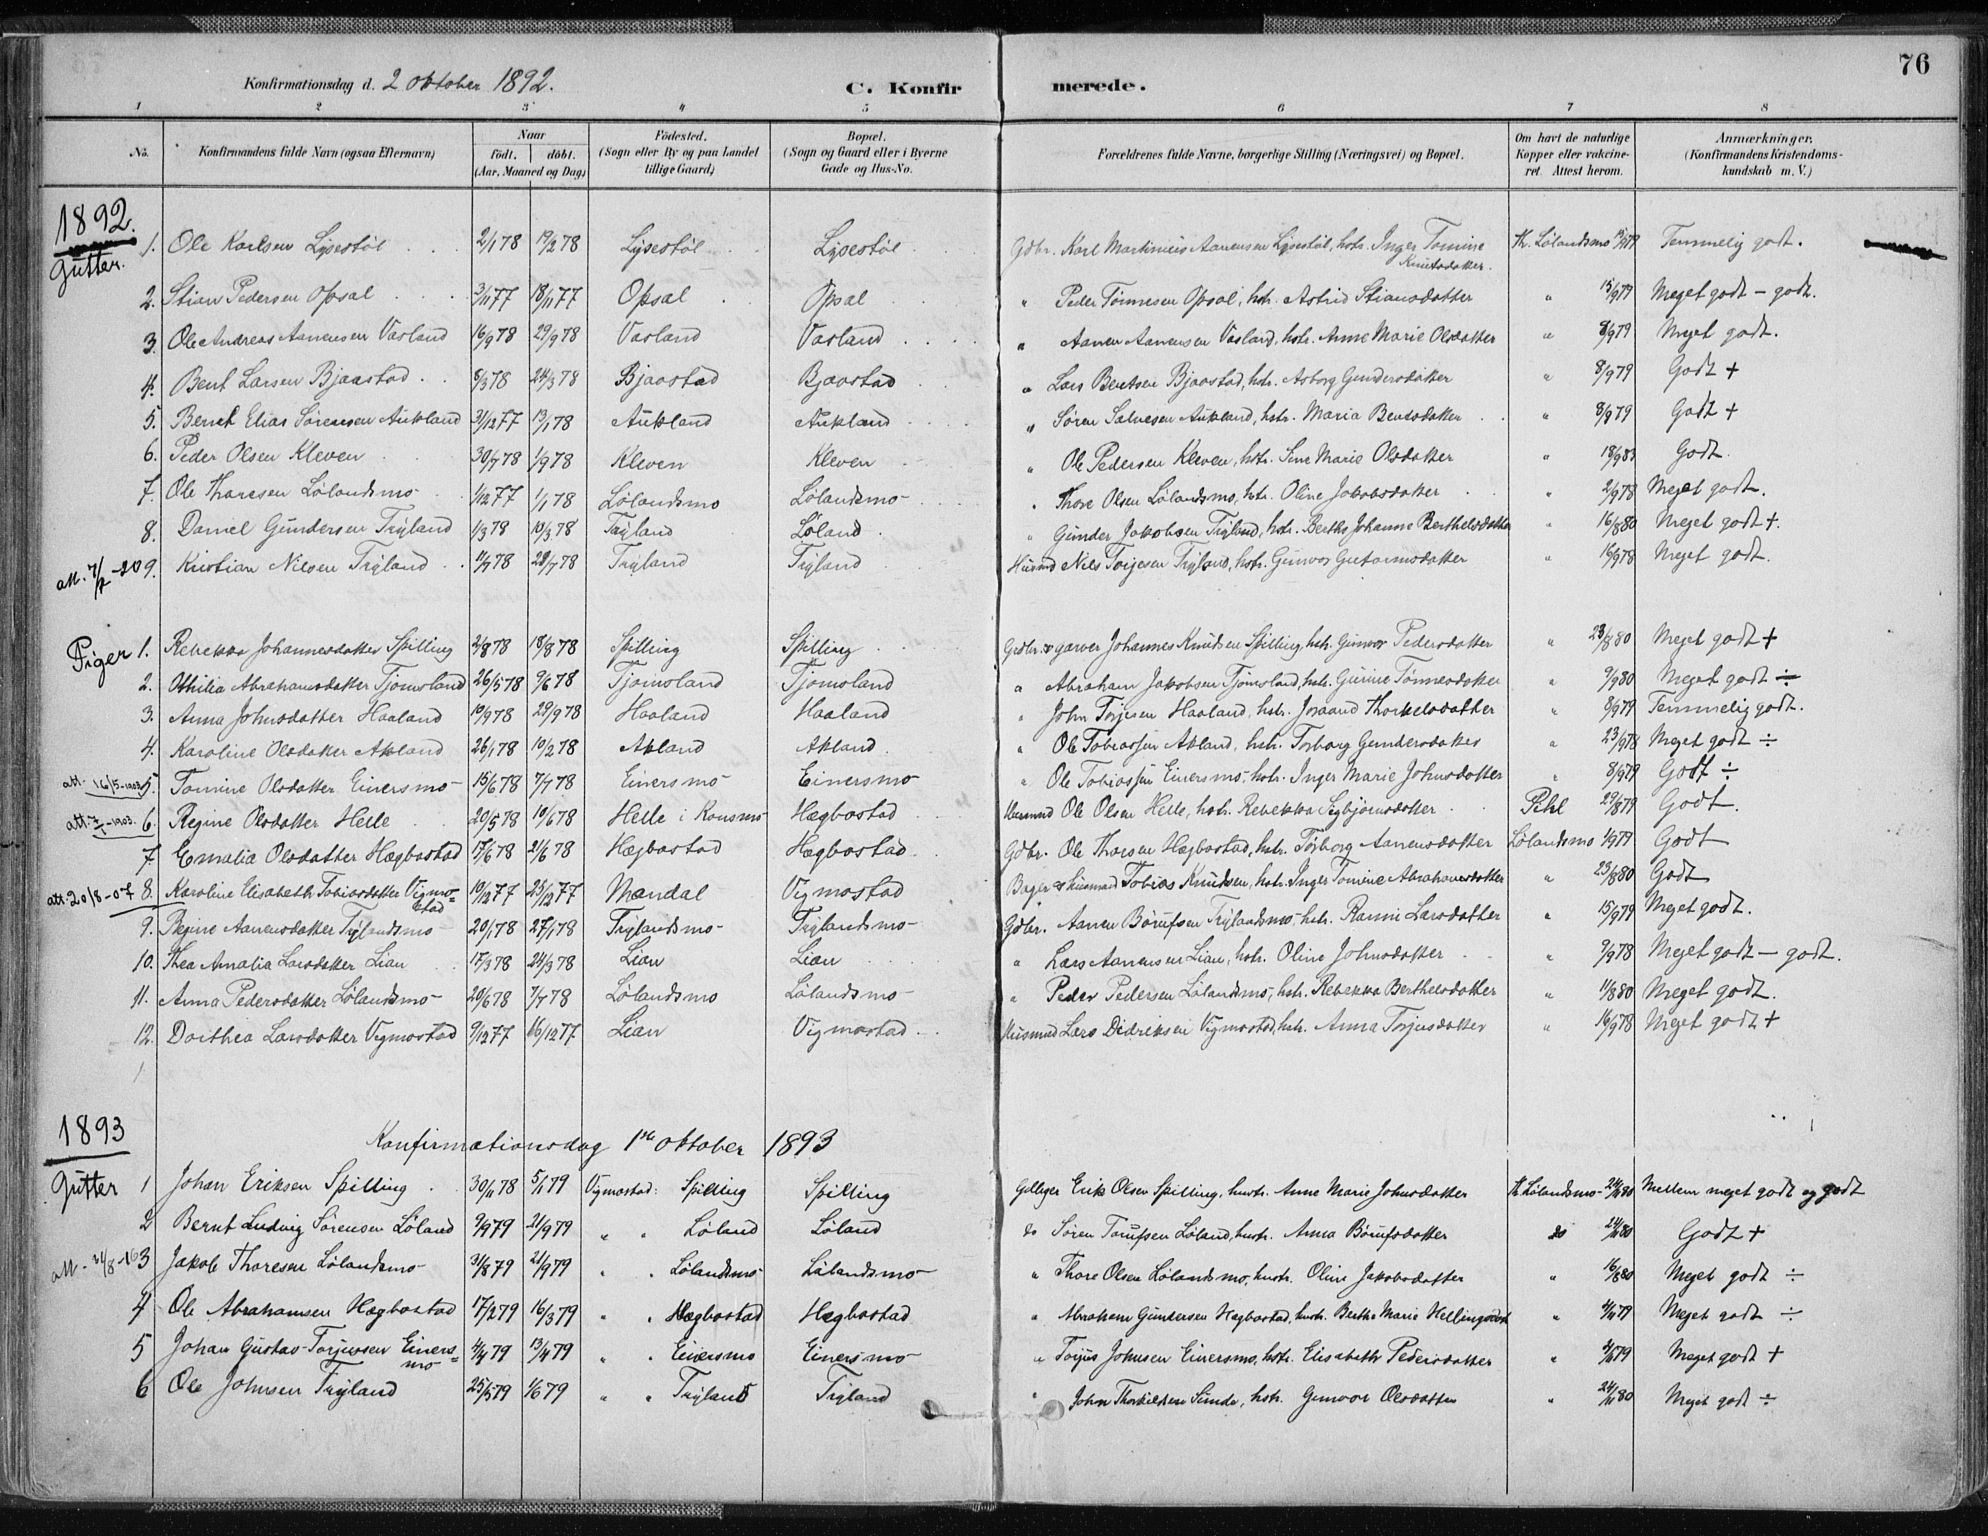 76
Konfirmationsdag d. 2 oktober 1892. C. Konfirmerede.
1 2 3 " 5 6 7 8
No. Konfirmandens fulde Navn (ogsaa Efternavn) Naar födt. döbt. (Aar, Maaned og Dag) Födested. (Sogn eller By og paa Landet tillige Gaard) Bopæl. (Sogn og Gaard eller i Byerne Gade og Hus-No. Forældrenes fulde Navne, borgerlige Stilling (Næringsvei) og Bopæl. Om havt de naturlige Kopper eller vakcineret. Attest herom. Anmærkninger. (Konfirmandens Kristendomskundskab m. V.)
1892.
Gutter.
1. Ole Karlsen Lysestöl 2/1 78 19/2 78 Lysestöl Lysestöl Gdbr. Karl Martinius Aanensen Lysestöl, hstr. Inger Tomine Knutsdatter. Th. Lölandsmo 79 Temmelig godt.
2. Stian Pedersen Opsal 3/11 77 18/11 77 Opsal Opsal " Peder Tönnesen Opsal, hstr. Astrid Stiansdatter " 15/9 79 Meget godt - godt.
3. Ole Andreas Aanensen Vasland 16/9 78 29/9 78 Vasland Vasland " Aanen Aanensen Vasland, hstr. Anne Marie Olsdatter " 8/9 79 Meget godt.
4. Bent Larsen Bjaastad 8/3 78 24/3 78 Bjaastad Bjaastad " Lars Bentsen Bjaastad, hstr. Asborg Gundersdatter " 8/9 79 Godt +
5. Bernt Elias Sörensen Aukland 31/12 77 13/1 78 Aukland Aukland " Sören Salvesen Aukland, hstr. Maria Bentsdatter " 8/9 79 Godt +
6. Peder Olsen Kleven 30/7 78 1/9 78 Kleven Kleven " Ole Pedersen Kleven, hstr. Sine Marie Olsdatter " 18/9 83 Godt.
7. Ole Thoresen Lölandsmo 1/12 77 1/1 78 Lölandsmo Lölandsmo " Thore Olsen Lölandsmo, hstr. Oline Jakobsdatter " 2/9 78 Meget godt.
8. Daniel Gundersen Tryland 1/3 78 10/3 78 Tryland Löland " Gunder Jakobsen Tryland, hstr. Berthe Johanne Berthelsdatter " 16/8 80 Meget godt +.
att. 7/2-20 9. Kristian Nilsen Tryland 11/7 78 28/7 78 Tryland Tryland Husmd Nils Torjesen Tryland, hstr. Gunvor Guttormsdatter " 16/9 78 Meget godt.
Piger 1. Rebekka Johannesdatter Spilling 2/8 78 18/8 78 Spilling Spilling Gdbr. & garver Johannes Knudsen Spilling, hstr. Gunvor Pedersdatter " 23/8 80 Meget godt +
2. Othilia Abrahamsdatter Tjomsland 26/5 78 9/6 78 Tjomsland Tjomsland " Abraham Jakobsen Tjomsland, hstr. Gurine Tönnesdatter " 9/9 80 Meget godt ÷
3. Anna Johnsdatter Haaland 10/9 78 29/9 78 Haaland Haaland " John Torjesen Haaland, hstr. Joraand Thorkelsdatter " 8/9 79 Temmelig godt.
4. Karoline Olsdatter Akland 26/1 78 10/2 78 Akland Akland " Ole Tobiassen Akland, hstr. Torborg Gundersdatter " 23/9 78 Meget godt ÷
att. 16/5-1903 5. Tomine Olsdatter Einersmo 15/6 78 7/7 78 Einersmo Einersmo " Ole Tobiassen Einersmo, hstr. Inger Marie Johnsdatter " 8/9 79 Godt ÷
att. 7/1-1903. 6. Regine Olsdatter Helle 20/5 78 10/6 78 Helle i Konsmo Hægbostad Husmand Ole Olsen Helle, hstr. Rebekka Sigbjörnsdatter Pihl 29/8 79 Godt.
7 Emalia Olsdatter Hægbostad 17/6 78 21/6 78 Hægbostad Hægbostad Gdbr. Ole Thorsen Hægbostad, hstr. Torborg Aanensdatter Lölandsmo 1/9 79 Godt
att. 20/8-07 8. Karoline Elisabeth Tobiasdatter Vigmostad 10/12 77 25/12 77 Mandal Vigmostad Bager & husmand Tobias Knudsen, hstr. Inger Tomine Abrahamsdatter " 23/8 80 Godt
9. Regine Aanensdatter Trylandsmo 20/1 78 27/1 78 Trylandsmo Trylandsmo Gdbr. Aanen Börufsen Trylandsmo, hstr. Rannie Larsdatter " 15/9 79 Meget godt.
10. Thea Amalia Larsdatter Lian 17/3 78 24/3 78 Lian Lian " Lars Aanensen Lian, hstr. Oline Johnsdatter " 9/9 78 Meget godt - godt.
11. Anna Pedersdatter Lölandsmo 20/6 78 7/7 78 Lölandsmo Lölandsmo " Peder Pedersen Lölandsmo, hstr. Rebekka Berthelsdatter " 11/8 80 Meget godt.
12. Dorthea Larsdatter Vigmostad 9/12 77 16/12 77 Lian Vigmostad Husmand Lars Didriksen Vigmostad, hstr. Anna Torjusdatter " 16/9 78 Meget godt +
1893
Konfirmationsdag 1ste oktober 1893
Gutter 1 Johan Eriksen Spilling 30/11 78 5/1 79 Vigmostad: Spilling Spilling Gdbruger Erik Olsen Spilling, hustr. Anne Marie Johnsdatter Th. Lölandsmo 80 Mellem meget godt og godt
2 Bernt Ludvig Sörensen Löland 9/9 79 21/9 79 " " Löland Löland do Sören Torufsen Löland, hustr. Anna Börufsdatter do 80 Godt +
att. 31/8-16 3 Jakob Thoresen Lölandsmo 31/8 79 21/9 79 " " Lölandsmo Lölandsmo " Thore Olsen Lölandsmo, hustr. Oline Jakobsdatter " 16/8 80 Meget godt ÷
4 Ole Abrahamsen Hægbostad 17/2 79 16/3 79 " " Hægbostad Hægbostad " Abraham Gundersen Hægbostad, hustr. Berthe Marie Hellingsdatt " 79 Meget godt ÷
5 Johan Gustav Torjussen Einersmo 4/4 79 13/4 79 " " Einersmo Einersmo " Torjus Johnsen Einersmo, hstr. Elisabeth Pedersdatter " 79 Meget godt +
6 Ole Johnsen Tryland 25/5 79 1/6 79 " " Tryland Tryland " John Thorkildsen Simdø, hstr. Gunvor Olsdatter " 80 Meget godt ÷